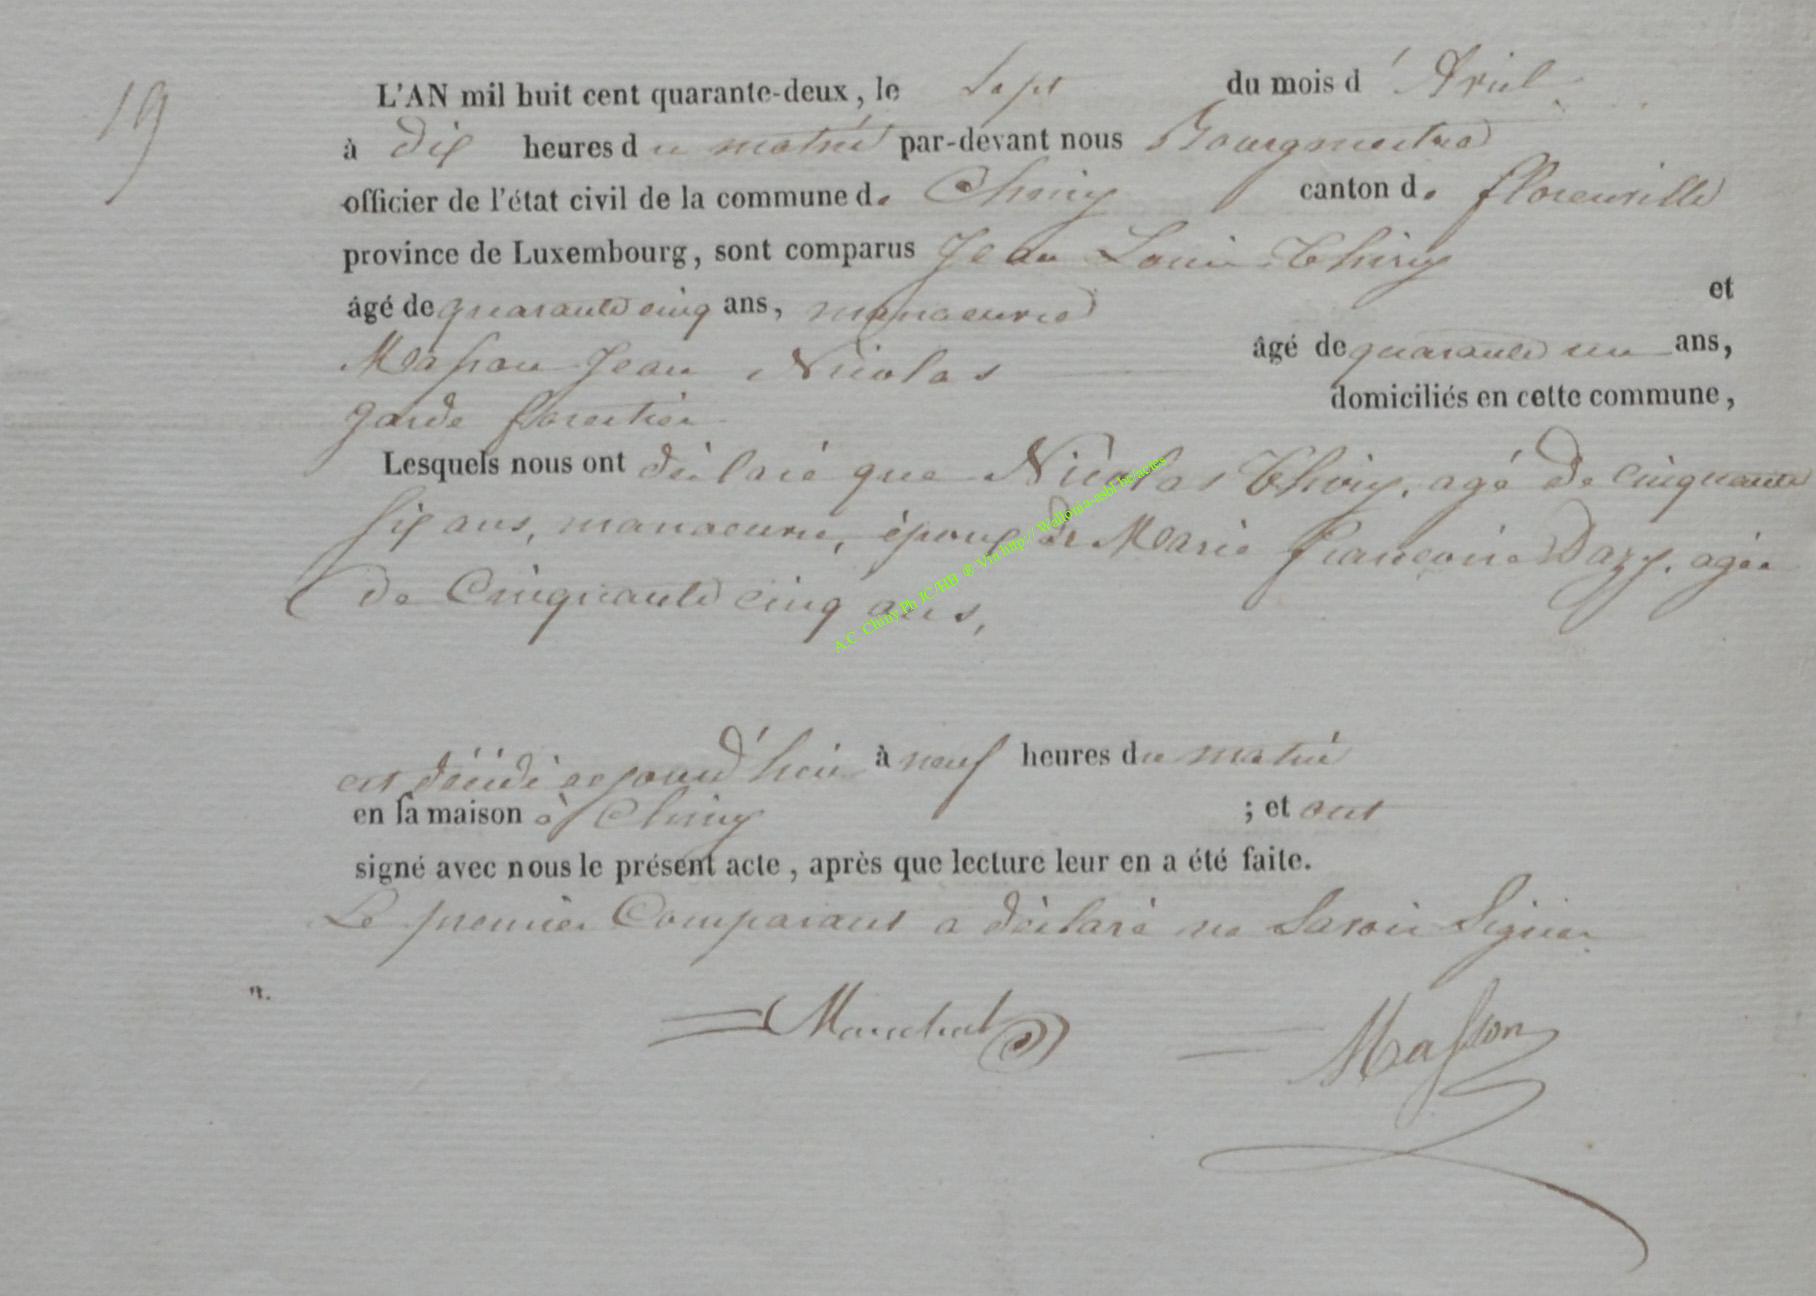 19
L'AN mil huit cent quarante-deux, le Sept du mois d'Avril
à dix heures du matin par-devant nous Bourgmestre
officier de l'état civil de la commune de Chiny canton de florenville
province de Luxembourg, sont comparus Jean Louis Thiry
âgé de quarante cinq ans, manoeuvre et
Masson Jean Nicolas âgé de quarante un ans,
garde forestier domiciliés en cette commune,
Lesquels nous ont déclaré que Nicolas Thiry, agé de cinquante
six ans, manoeuvre, époux de Marie françoise Dazy, agée
de Cinquante cinq ans,
est décédé aujourd'hui à neuf heures du matin
en sa maison à Chiny ; et ont
signé avec nous le présent acte, après que lecture leur en a été faite.
Le premier Comparant a déclaré ne Savoir Signer
Maréchal Masson
A.C. Chiny Ph JC/HB ® Via http://Wallonia-asbl.be/actes